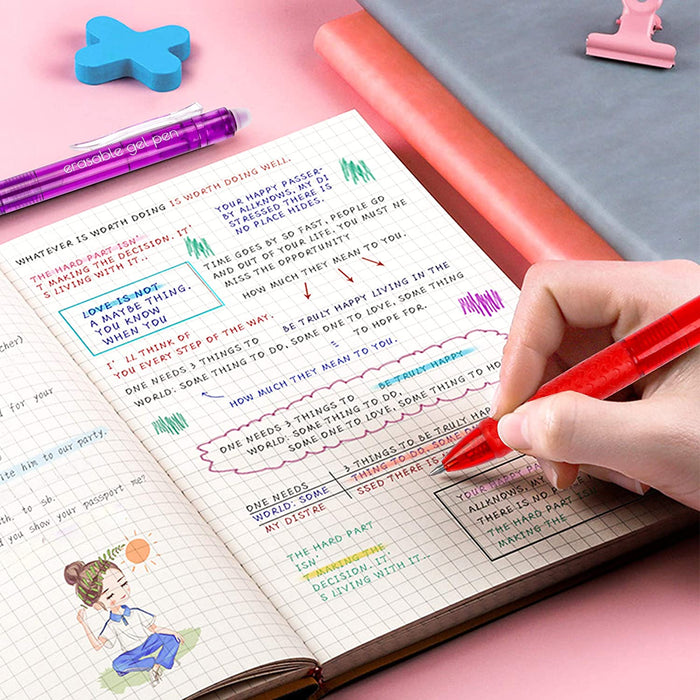 erasable gel pen
WHATEVER IS WORTH DOING IS WORTH DOING WELL.
THE HARD PART ISN'
T MAKING THE DECISION. IT'
S LIVING WITH IT...
YOUR HAPPY PASSER-
BY ALLKNOWS, MY DI
STRESSED THERE IS
NO PLACE HIDES.
TIME GOES BY SO FAST, PEOPLE GO
AND OUT OF YOUR LIFE. YOU MUST NE
MISS THE OPPORTUNITY
HOW MUCH THEY MEAN TO YOU.
LOVE IS NOT
A MAYBE THING.
YOU KNOW
WHEN YOU
I' LL THINK OF
YOU EVERY STEP OF THE WAY.
BE TRULY HAPPY LIVING IN THE
ONE NEEDS 3 THINGS TO
WORLD: SOME THING TO DO, SOME ONE TO LOVE, SOME THING
TO HOPE FOR.
HOW MUCH THEY MEAN TO YOU.
ONE NEEDS 3 THINGS TO BE TRULY HAPPY
WORLD: SOME THING TO DO,
SOME ONE TO LOVE, SOME THING TO HO
3 THINGS TO BE TRULY HAP
ONE NEEDS THING TO DO, SOME
WORLD: SOME SSED THERE IS
MY DISTRE
YOUR HAPPY PASS
ALLKNOWS, MY
THERE IS NO PLACE
THE HARD PART
MAKING THE
THE HARD PART
ISN'
T MAKING THE
DECISION. IT'
S LIVING WITH IT...
cher)
for your
ite him to our party.
th. to sb.
d you show your passport me?